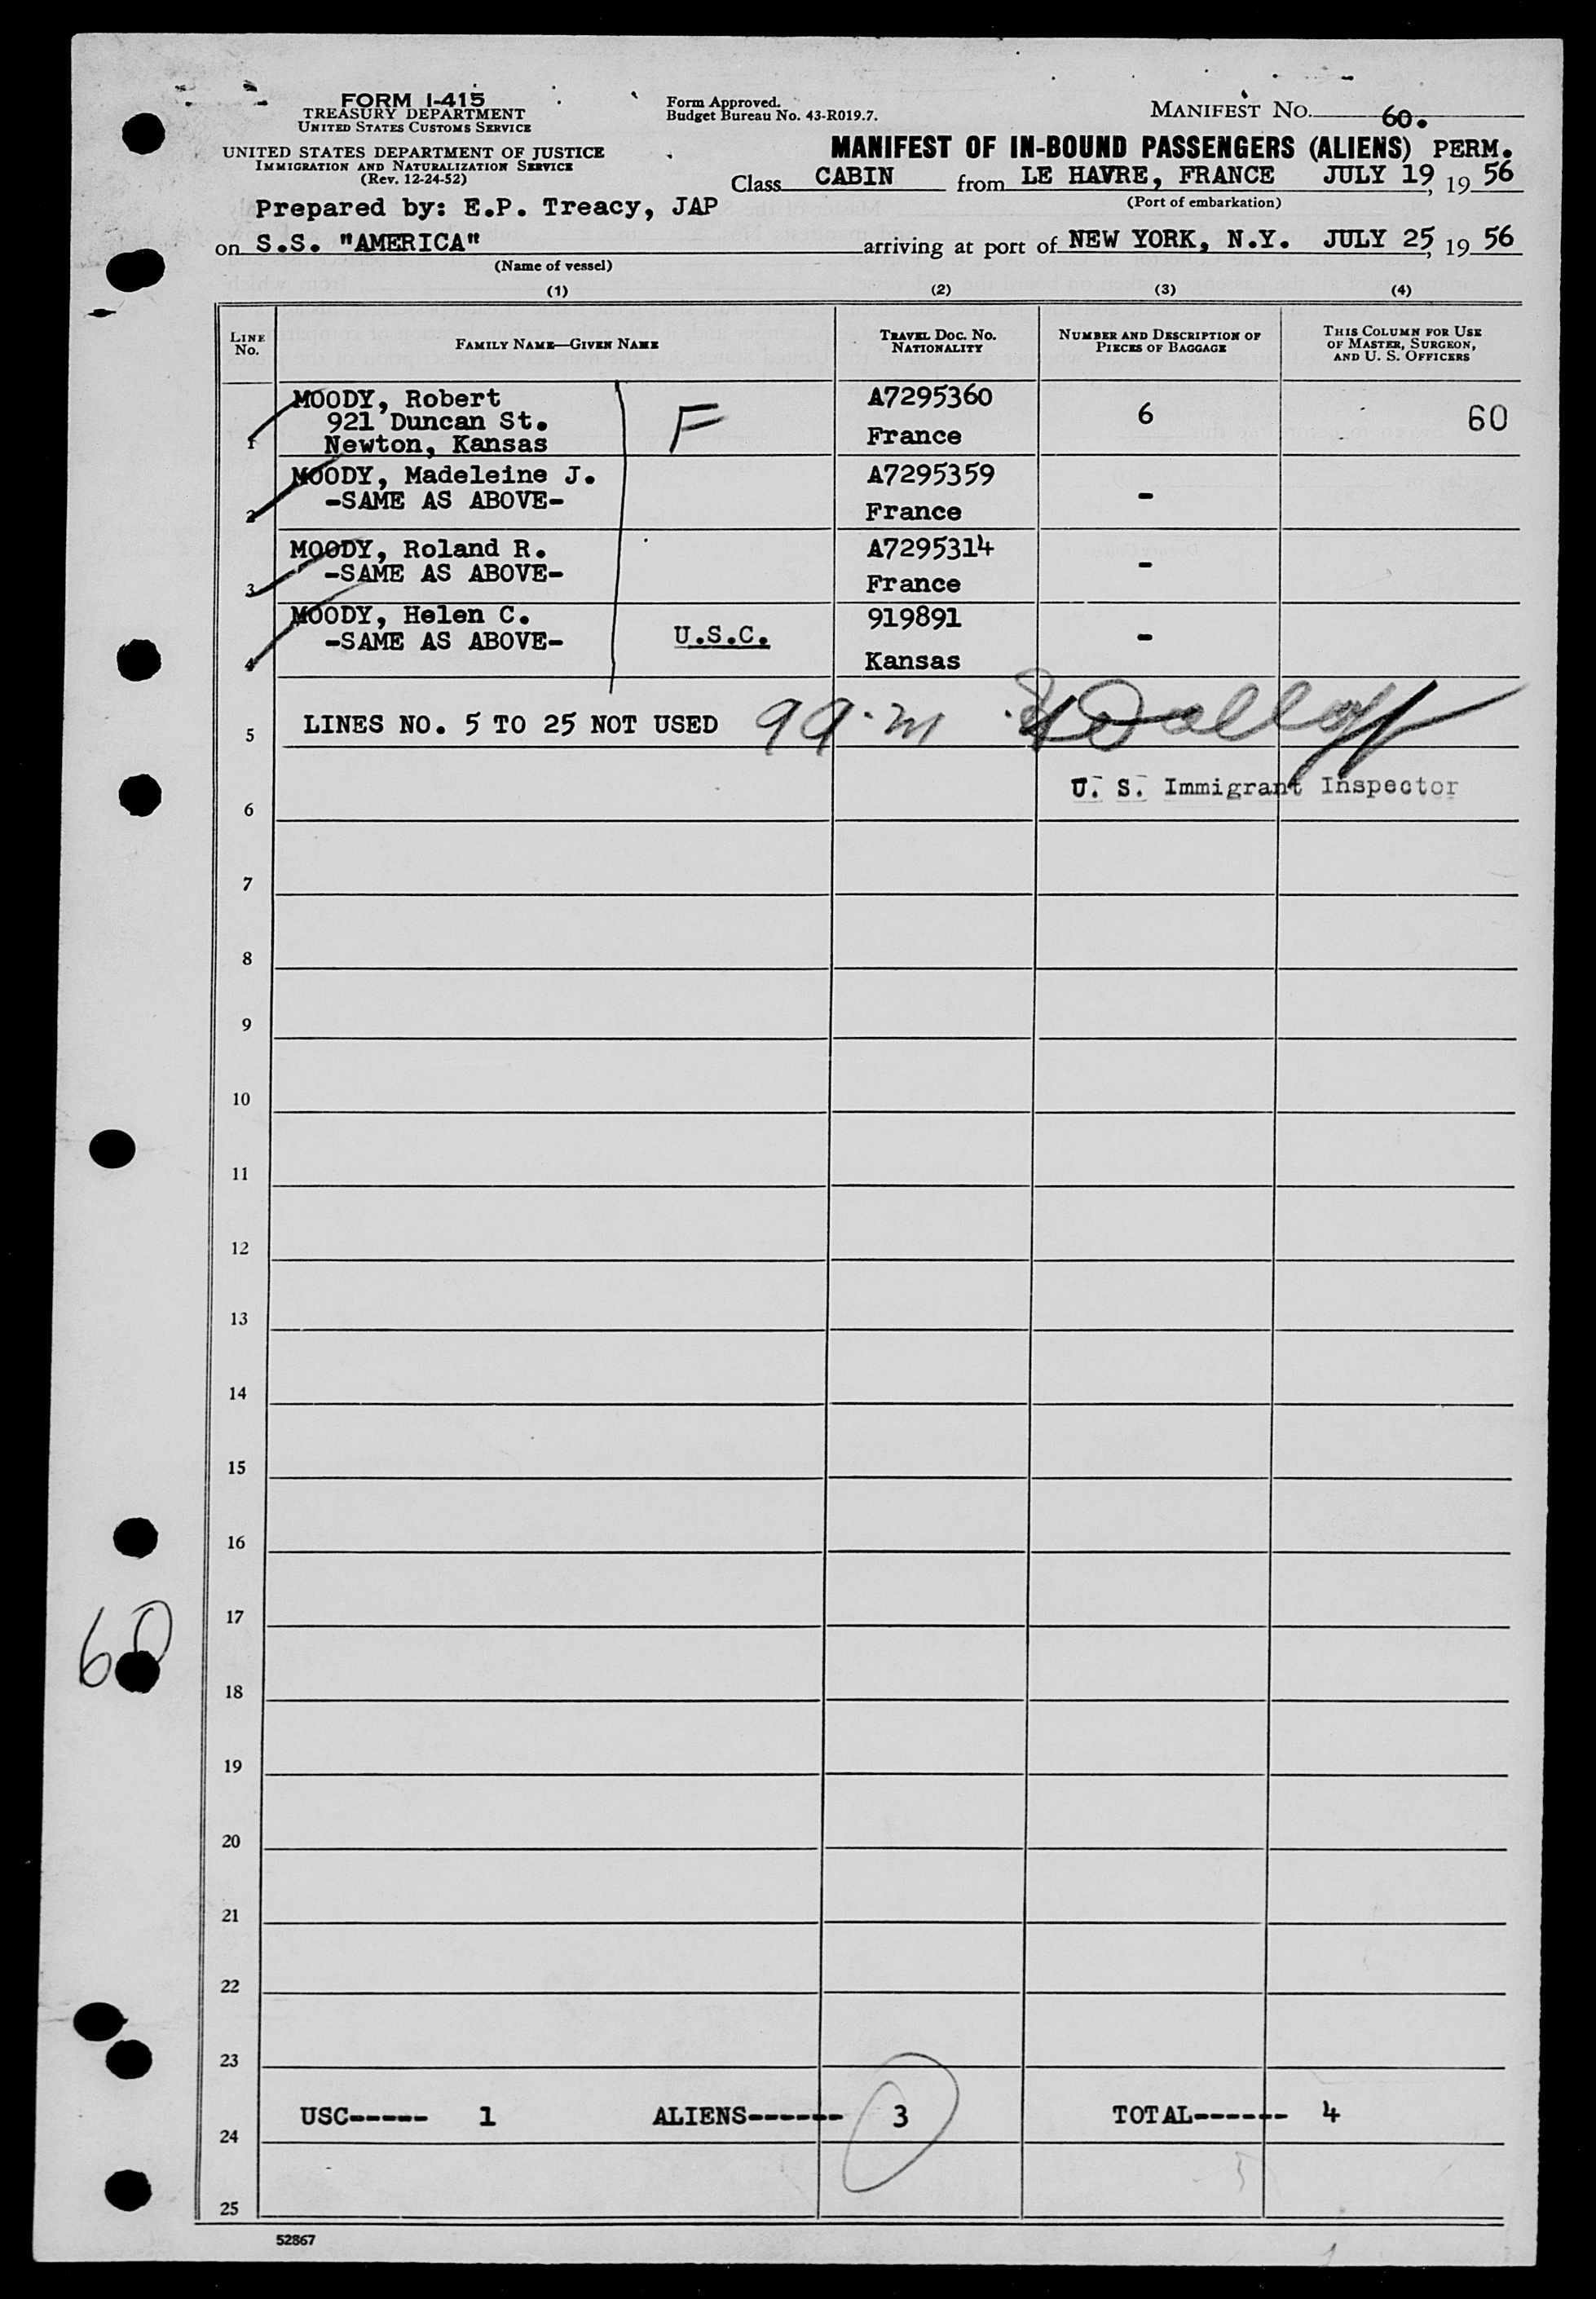 FORM I-415
TREASURY DEPARTMENT
UNITED STATES CUSTOMS SERVICE
UNITED STATES DEPARTMENT OF JUSTICE
IMMIGRATION AND NATURALIZATION SERVICE
(Rev. 12-24-52)
Form Approved.
Budget Bureau No. 43-R019.7.
MANIFEST NO. 60.
MANIFEST OF IN-BOUND PASSENGERS (ALIENS) PERM.
Class CABIN from LE HAVRE, FRANCE JULY 19, 19 56
(Port of embarkation)
Prepared by: E.P. Treacy, JAP
on S.S. "AMERICA" arriving at port of NEW YORK, N.Y. JULY 25, 19 56
(Name of vessel)
(1) (2) (3) (4)
LINE NO. FAMILY NAME—GIVEN NAME TRAVEL DOC. NO. NATIONALITY NUMBER AND DESCRIPTION OF PIECES OF BAGGAGE THIS COLUMN FOR USE OF MASTER, SURGEON, AND U. S. OFFICERS
MOODY, Robert A7295360
921 Duncan St. F 6 60
1 Newton, Kansas France
MOODY, Madeleine J. A7295359
-SAME AS ABOVE- -
2 France
MOODY, Roland R. A7295314
-SAME AS ABOVE- -
3 France
MOODY, Helen C. 919891
-SAME AS ABOVE- U.S.C. -
4 Kansas
5 LINES NO. 5 TO 25 NOT USED
U. S. Immigrant Inspector
6
7
8
9
10
11
12
13
14
15
16
17
60
18
19
20
21
22
23
USC----- 1 ALIENS------ 3 TOTAL------ 4
24
25
52867